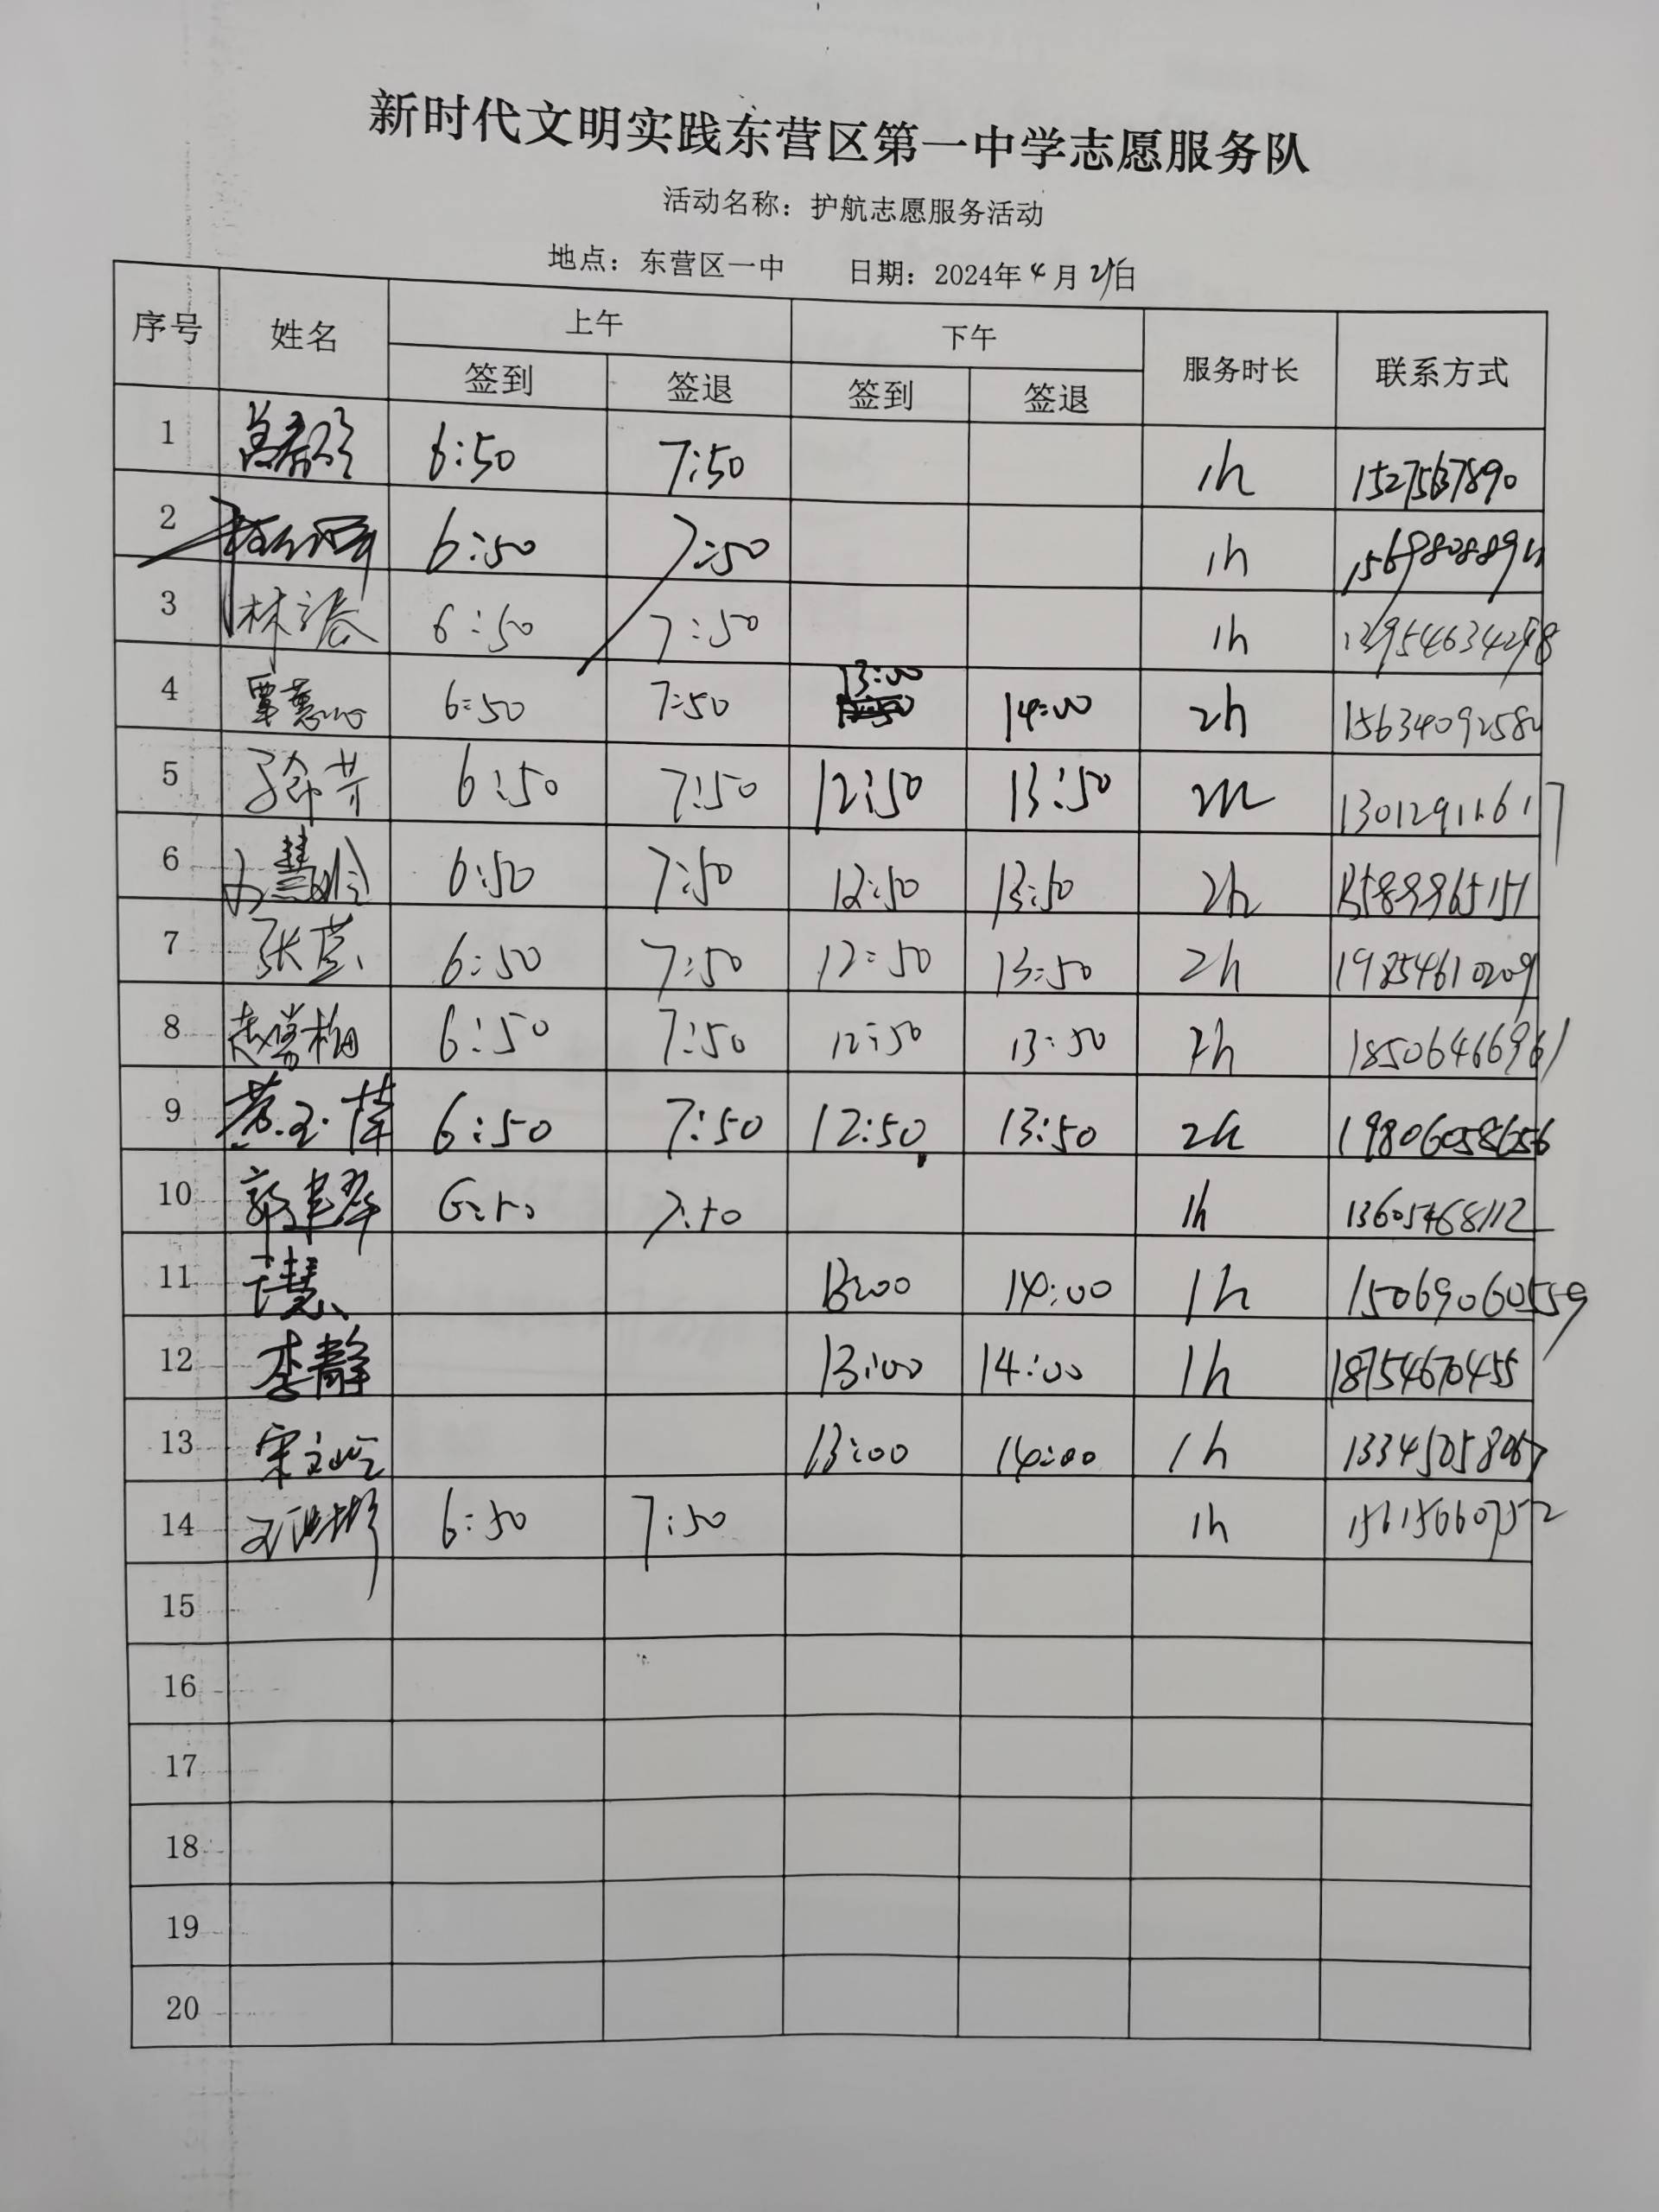 新时代文明实践东营区第一中学志愿服务队
活动名称：护航志愿服务活动
地点：东营区一中 日期：2024年4月 日
序号 姓名 上午 下午 服务时长 联系方式
签到 签退 签到 签退
1 6:50 7:50 1h
2 6:50 7:50 1h
3 林 6:50 7:50 1h
4 覃慧 6:50 7:50 13:00 14:00 2h
5 6:50 7:50 12:50 13:50 2h
6 慧 6:50 7:50 12:50 13:50 2h 13589965151
7 张 6:50 7:50 12:50 13:50 2h 19854610209
8 梅 6:50 7:50 12:50 13:50 2h 18506466961
9 6:50 7:50 12:50 13:50 2h 19806058656
10 郭建 6:50 7:50 1h 13605468112
11 慧 13:00 14:00 1h 15069060559
12 李静 13:00 14:00 1h 18754670455
13 宋文屹 13:00 14:00 1h 13345058067
14 王 6:50 7:50 1h 15615060752
15
16
17
18
19
20